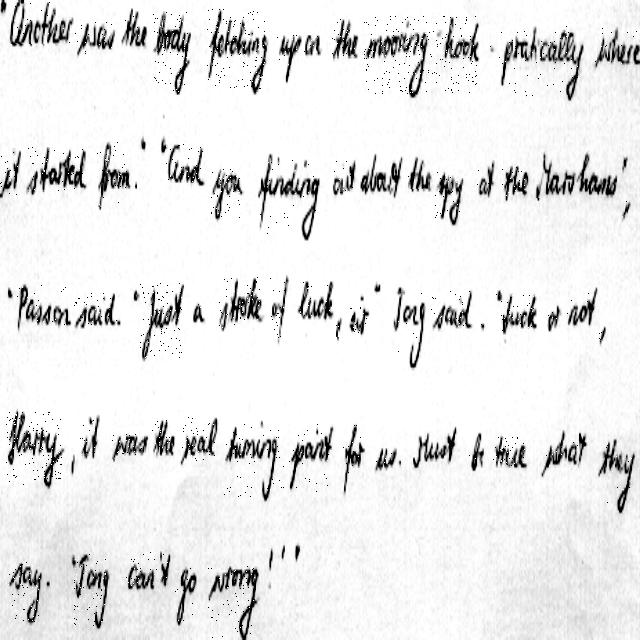 "Another was the body fetching up on the mooring hook - pratically where
it started from." "And you finding out about the spy at the Marshams',
"Passon said. "Just a stroke of luck, sir" Torg said. "Luck or not,
Harry, it was the real turning point for us. Must be true what they
say. 'Torg can't go wrong!'"